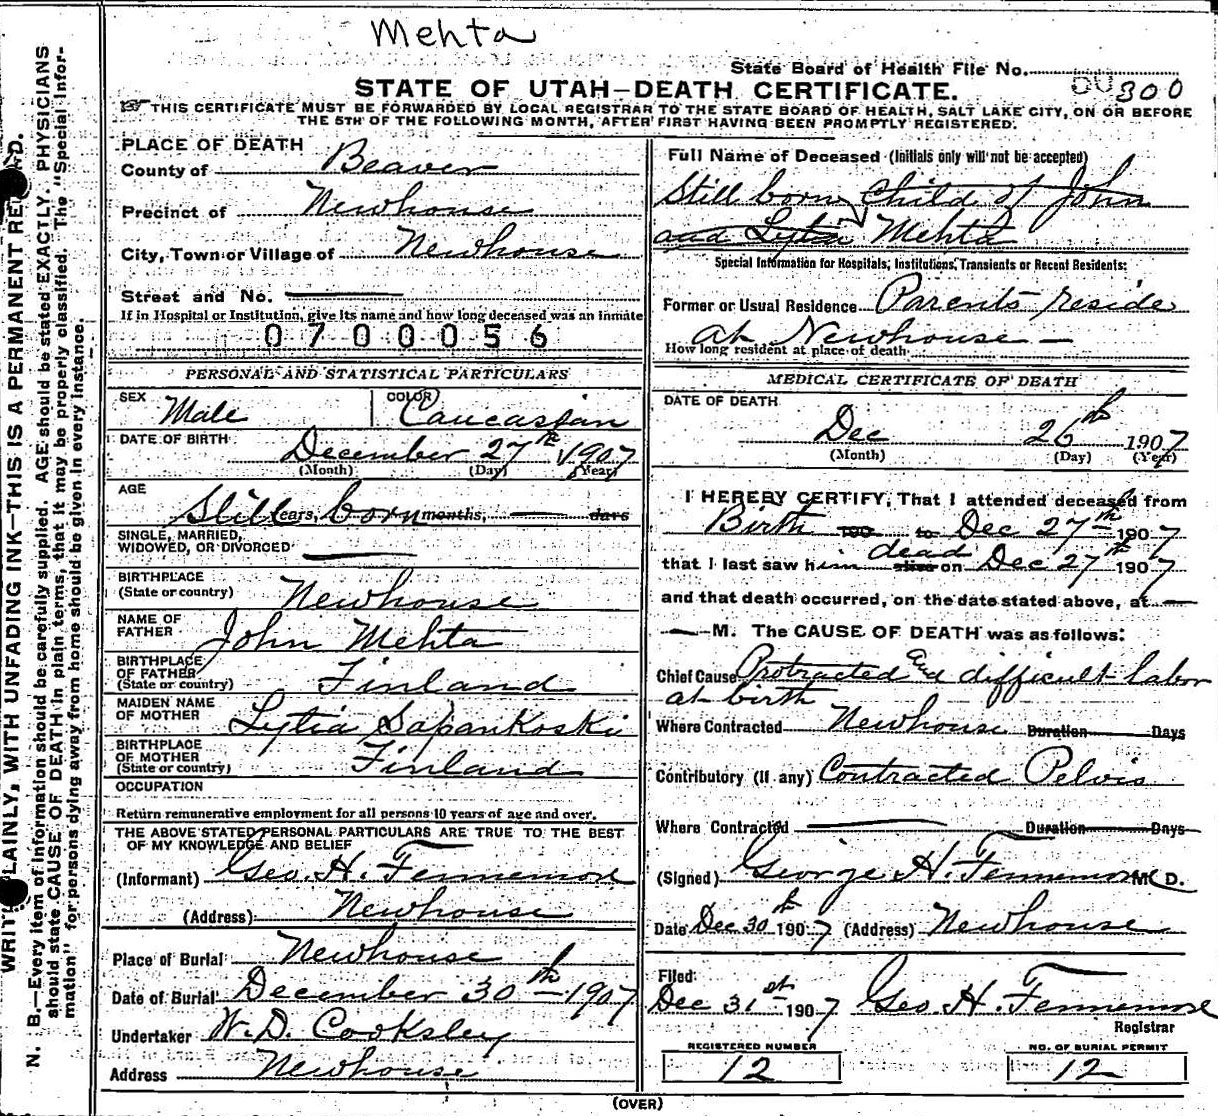 Mehta
State Board of Health File No. 300
STATE OF UTAH—DEATH CERTIFICATE.
THIS CERTIFICATE MUST BE FORWARDED BY LOCAL REGISTRAR TO THE STATE BOARD OF HEALTH, SALT LAKE CITY, ON OR BEFORE
THE 5TH OF THE FOLLOWING MONTH, AFTER FIRST HAVING BEEN PROMPTLY REGISTERED.
PLACE OF DEATH
County of Beaver
Precinct of Newhouse
City, Town or Village of Newhouse
Street and No.
If in Hospital or Institution, give its name and how long deceased was an inmate
0700056
PERSONAL AND STATISTICAL PARTICULARS
SEX Male COLOR Caucassian
DATE OF BIRTH December 27th 1907
(Month) (Day) (Year)
AGE
Still years, born months, days
SINGLE, MARRIED,
WIDOWED, OR DIVORCED
BIRTHPLACE
(State or country) Newhouse
NAME OF
FATHER John Mehta
BIRTHPLACE
OF FATHER
(State or country) Finland
MAIDEN NAME
OF MOTHER Lytia Sapankoski
BIRTHPLACE
OF MOTHER
(State or country) Finland
OCCUPATION
Return remunerative employment for all persons 10 years of age and over.
THE ABOVE STATED PERSONAL PARTICULARS ARE TRUE TO THE BEST
OF MY KNOWLEDGE AND BELIEF
(Informant) Geo. H. Fennemore
(Address) Newhouse
Place of Burial Newhouse
Date of Burial December 30th 1907
Undertaker W. D. Cooksley
Address Newhouse
Full Name of Deceased (Initials only will not be accepted)
Still born Child of John
and Lytia Mehta
Special Information for Hospitals, Institutions, Transients or Recent Residents:
Former or Usual Residence Parents reside
at Newhouse —
How long resident at place of death
MEDICAL CERTIFICATE OF DEATH
DATE OF DEATH
Dec 26th 1907
(Month) (Day) (Year)
I HEREBY CERTIFY, That I attended deceased from
Birth 190 to Dec 27th 1907
dead
that I last saw him alive on Dec 27th 1907
and that death occurred, on the date stated above, at —
— M. The CAUSE OF DEATH was as follows:
Chief Cause Protracted and difficult labor
at birth
Where Contracted Newhouse Duration Days
Contributory (If any) Contracted Pelvis
Where Contracted — Duration Days
(Signed) George H. Fennemore M. D.
Date Dec 30th 1907 (Address) Newhouse
Filed
Dec 31st 1907 Geo. H. Fennemore
Registrar
REGISTERED NUMBER
12
NO. OF BURIAL PERMIT
12
(OVER)
WRITE PLAINLY, WITH UNFADING INK—THIS IS A PERMANENT RECORD.
N. B.—Every item of information should be carefully supplied. AGE should be stated EXACTLY. PHYSICIANS
should state CAUSE OF DEATH in plain terms, that it may be properly classified. The "Special Infor-
mation" for persons dying away from home should be given in every instance.